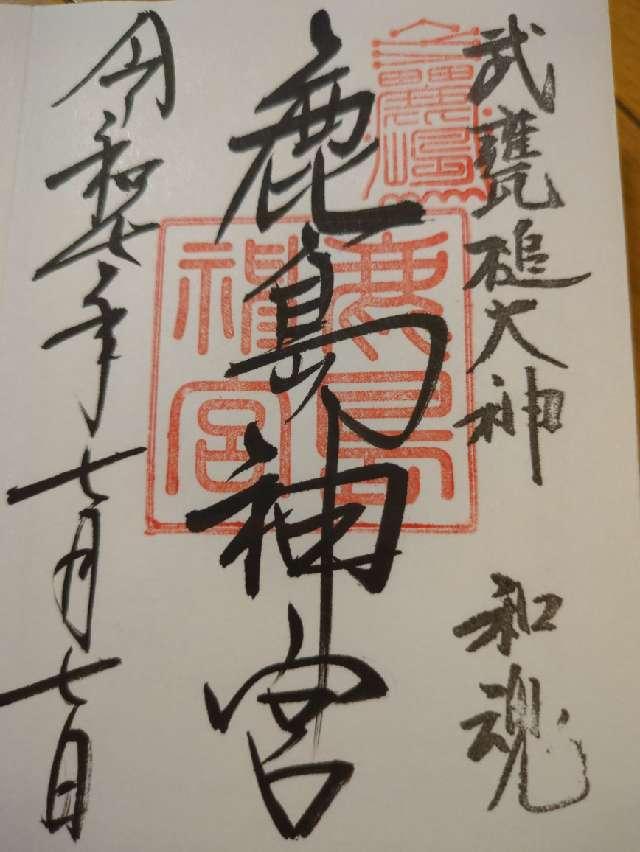 武甕槌大神　和魂
鹿島神宮
令和七年七月七日
鹿島
神宮